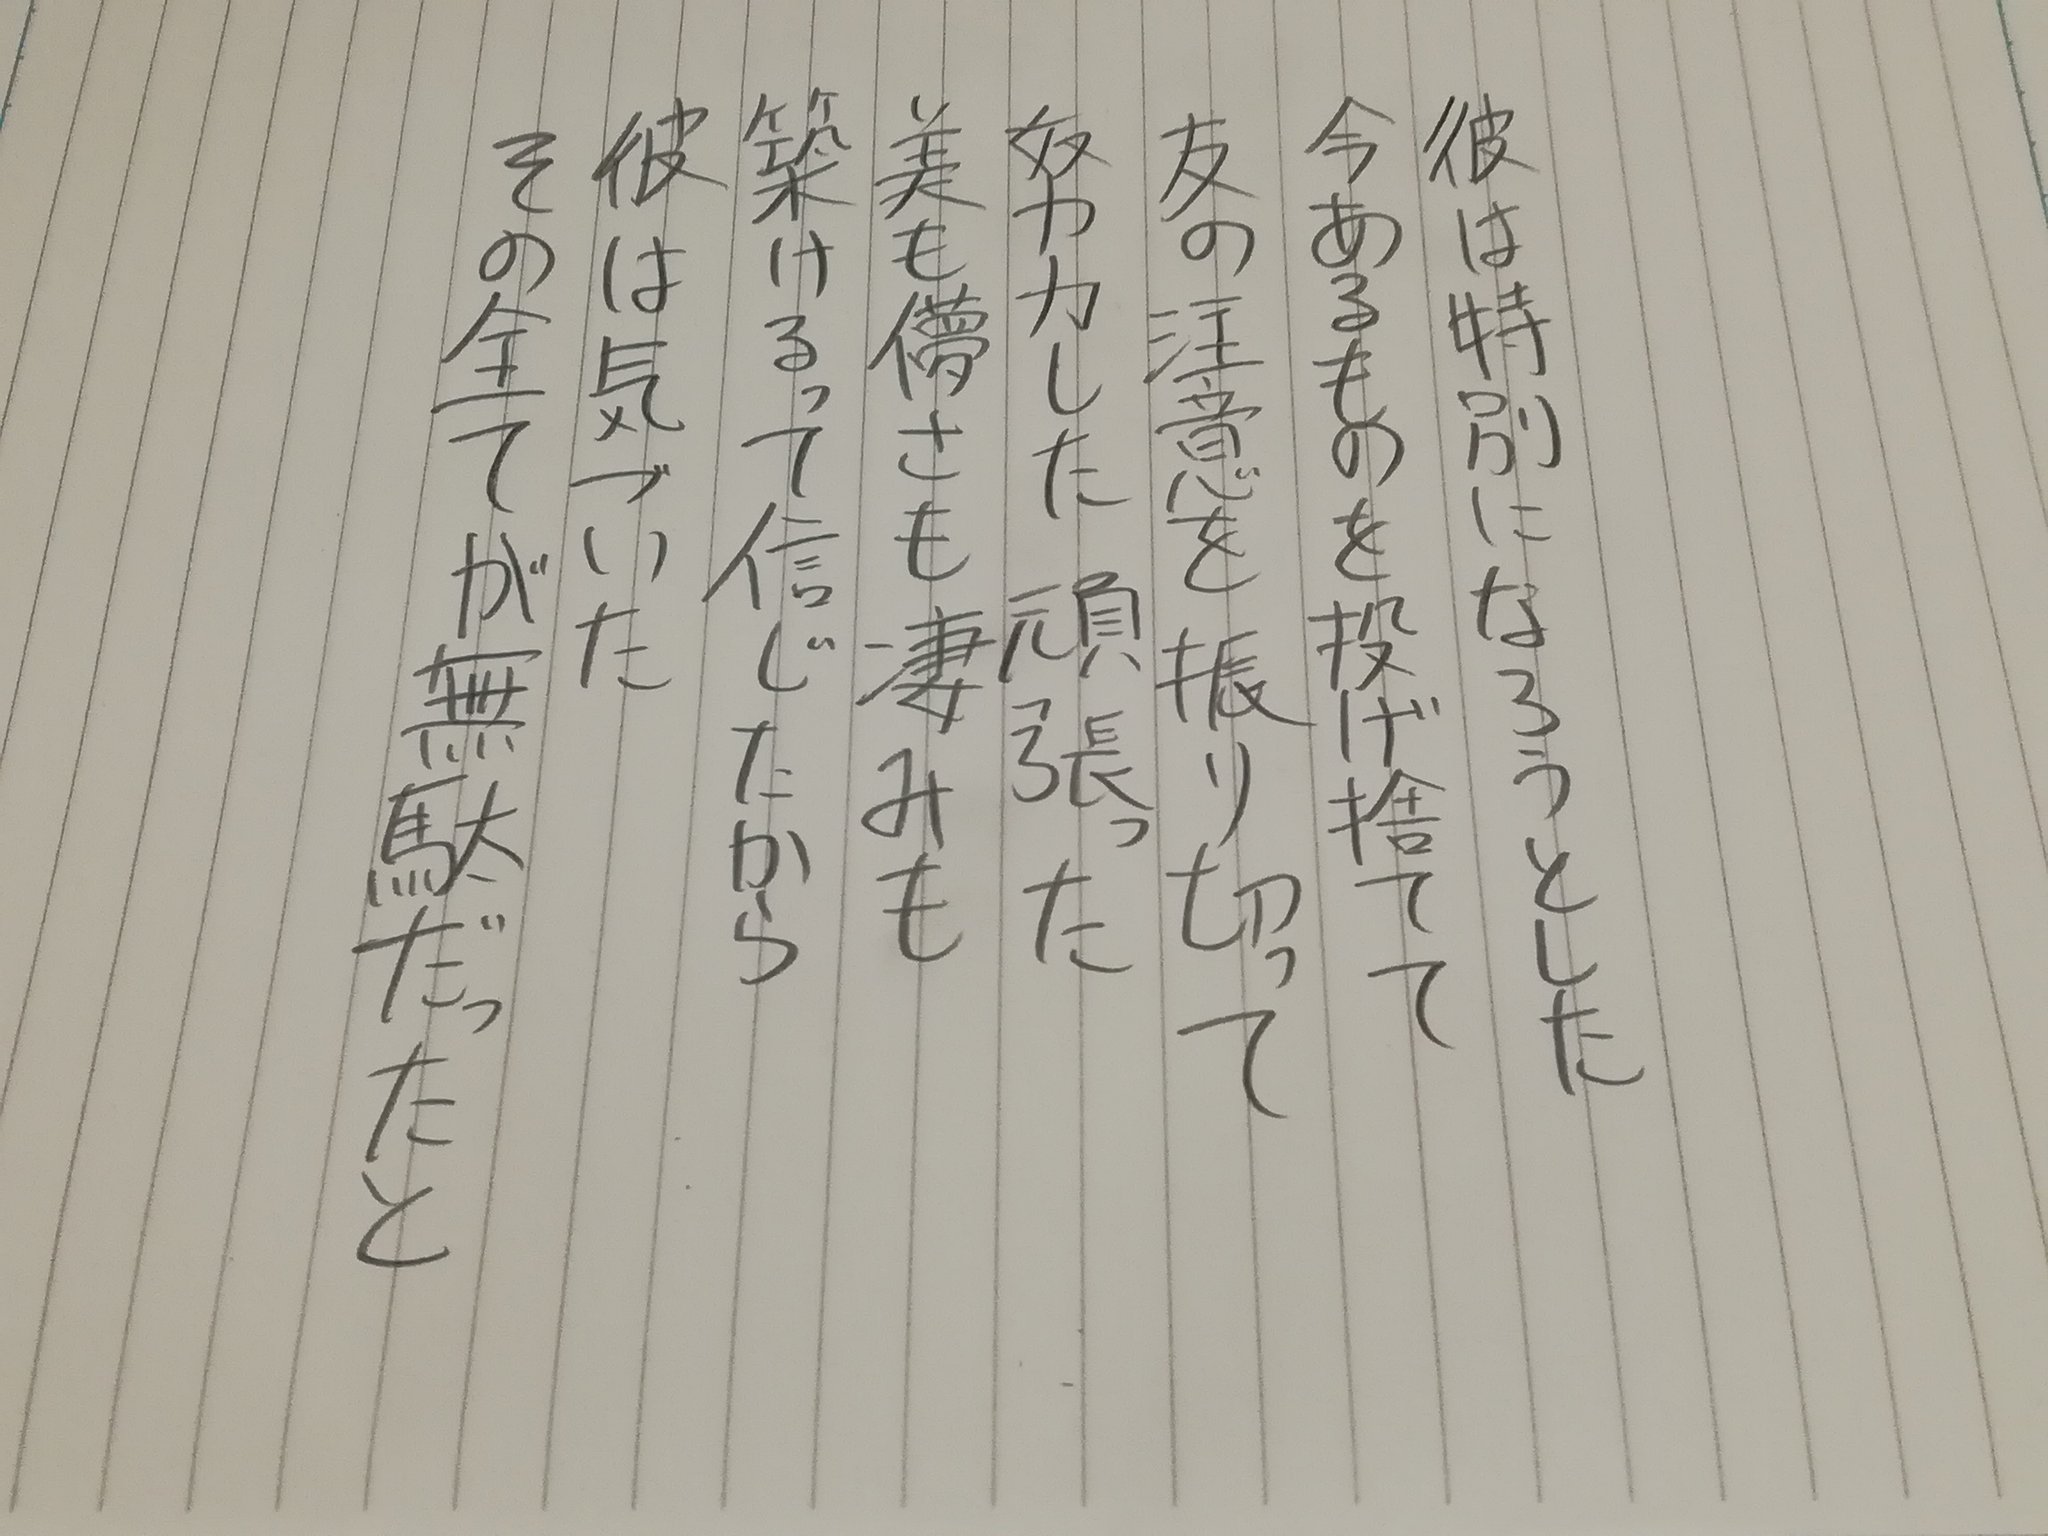 彼は特別になろうとした
今あるものを投げ捨てて
友の注意を振り切って
努力した頑張った
美も儚さも凄みも
築けるって信じたから
彼は気づいた
その全てが無駄だったと